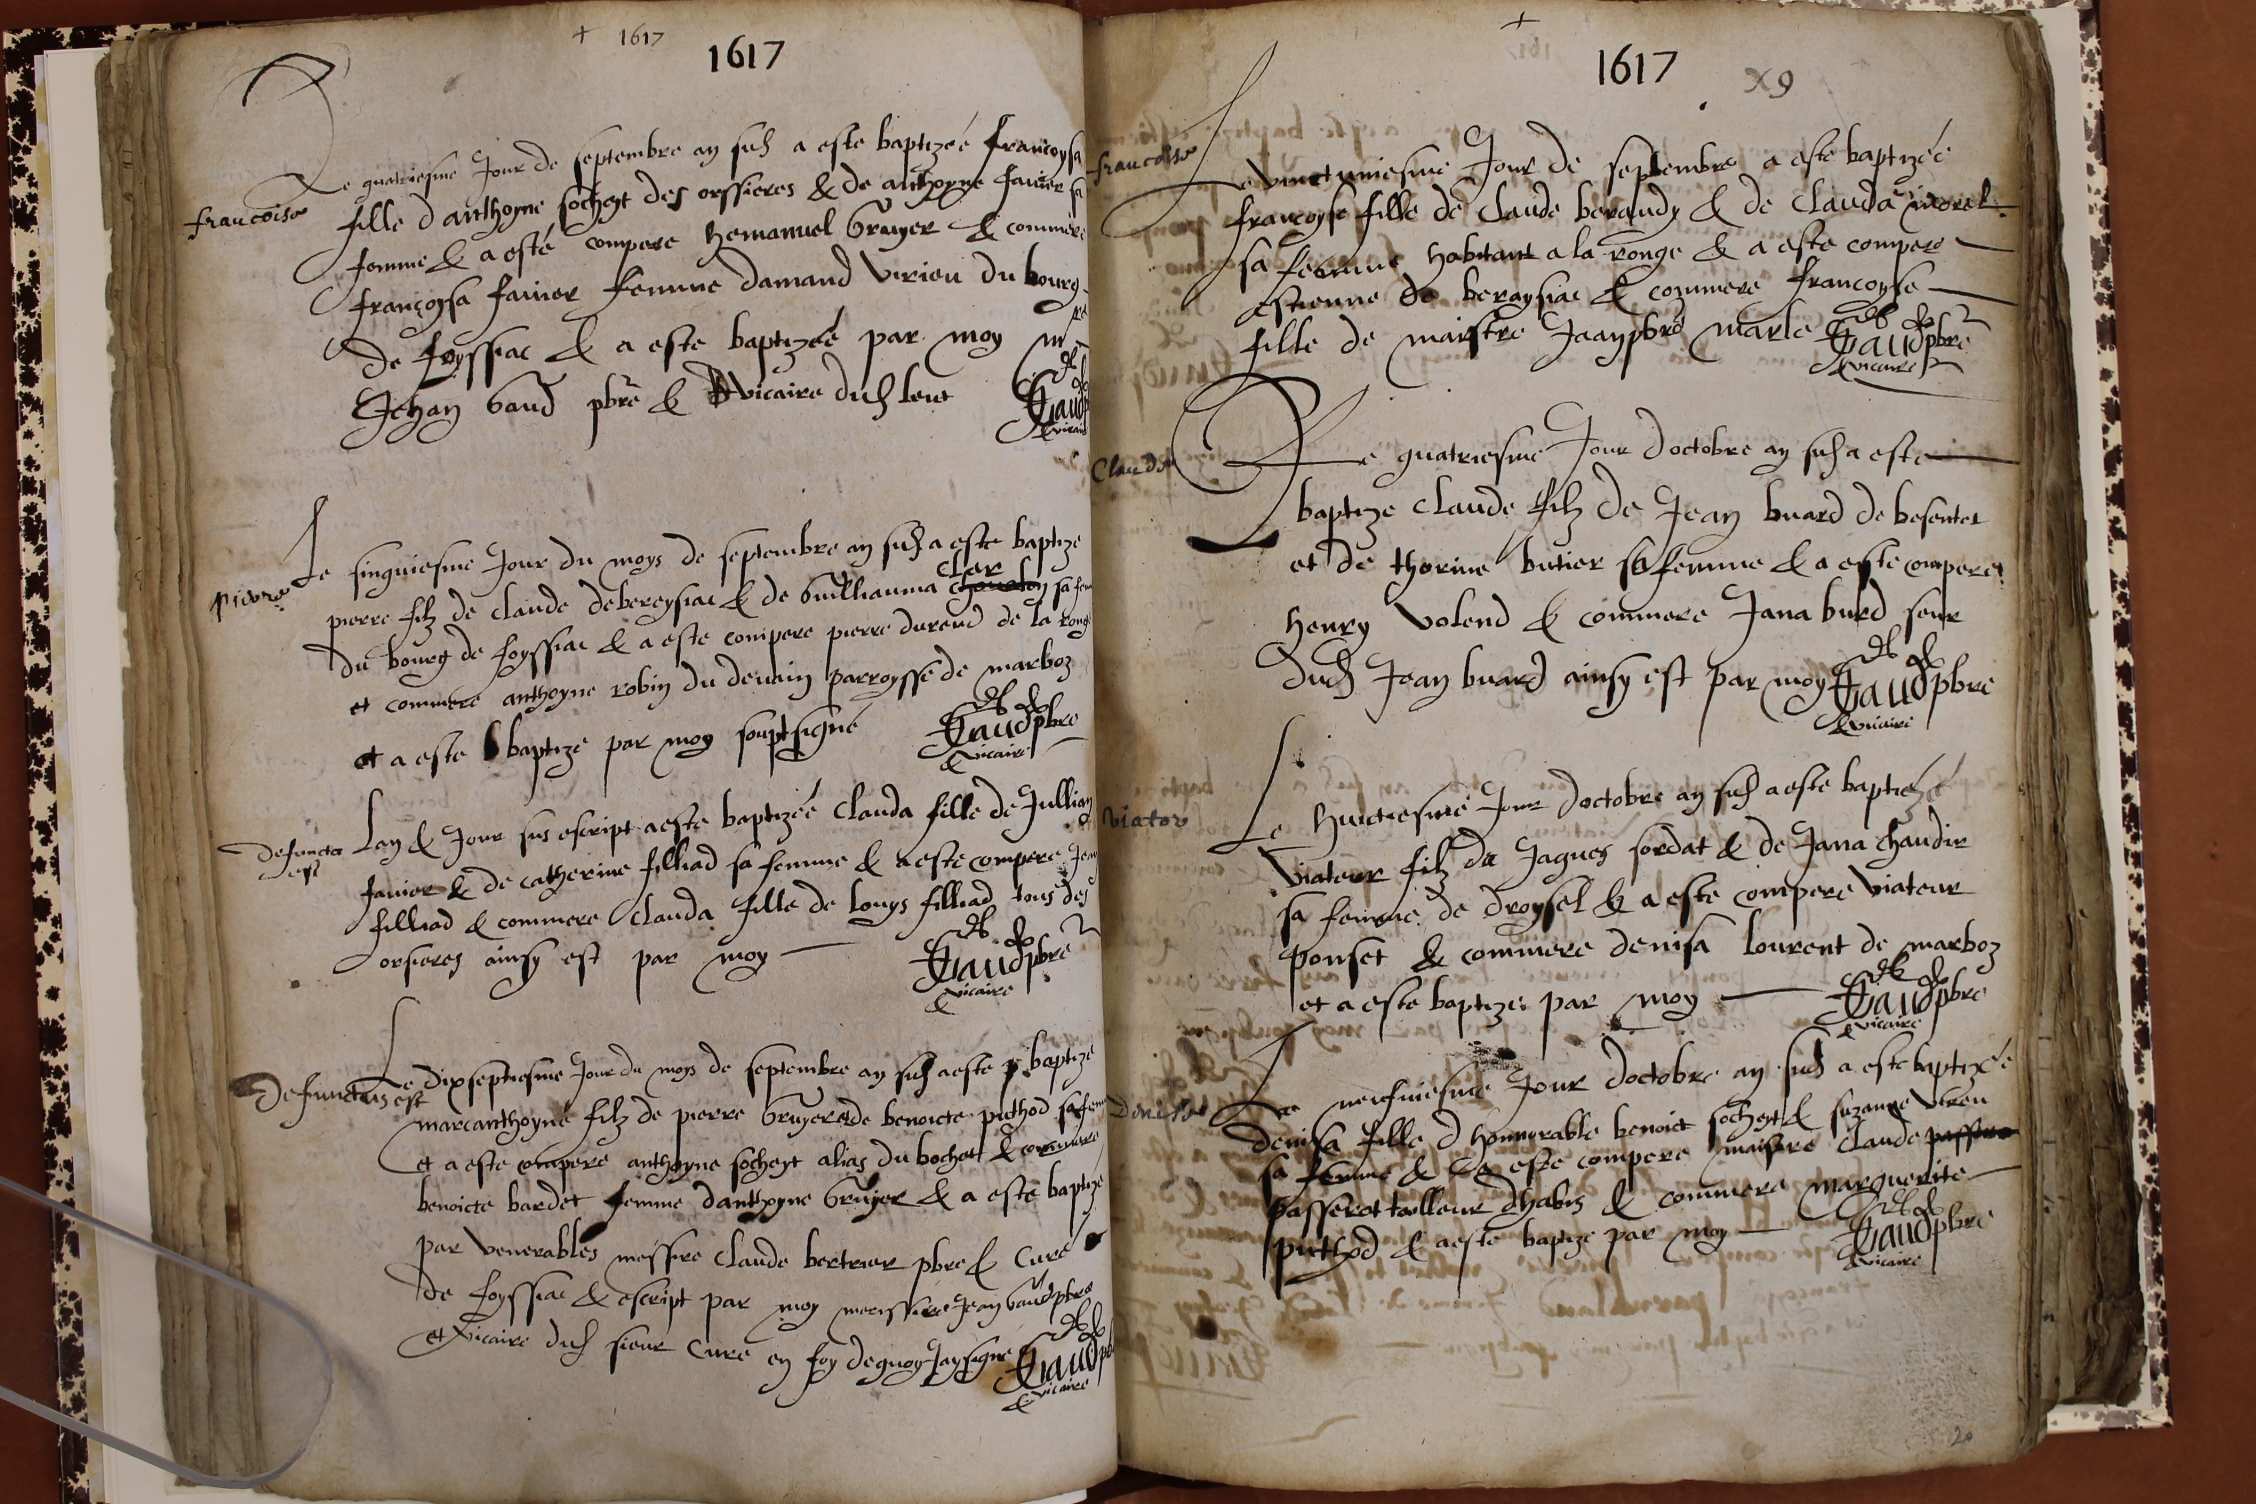 + 1617
1617
Le quatriesme Jour de septembre an susd a este baptizeé francoysa
francoise
fille d anthoyne socheyt des orssieres & de anthoyne favier sa
femme & a esté compere hemanuel Gruyer & commere
françoysa favier femme damand Virieu du bourg
de foyssiac & a este baptizeé par moy mre
Jehan Gaud pbre & Vicaire dud leut
Gaud pbre
& vicaire
Le sinquiesme Jour du moys de septembre an susd a este baptize
pierre
pierre filz de claude debereysiac & de Guilliauma cler sa fem
du bourg de foyssiac & a este compere pierre durend de la ronge
et commere anthoyne robin du devain parroysse de marboz
et a este baptize par moy souptsigné
Gaud pbre
& vicaire
Lan & Jour sus escript a este baptizeé Clauda fille de Jullian
defuncta est
favier & de catherine filliad sa femme & a este compere Jean
filliad & commere Clauda fille de louys filliad tous des
orsieres ainsy est par moy
Gaud pbre
& vicaire
Le dixseptiesme Jour du moys de septembre an susd a este baptizé
Defunctus est
marcanthoyne filz de pierre Gruyer & de benoicte puthod sa fem
et a este compere anthoyne socheyt alias du bochet & commere
benoicte bardet femme danthoyne Gruyer & a este baptize
par Venerables messire Claude bertrier pbre & Curé
de foyssiac & escript par moy messire Jean Gaud pbre
et Vicaire dud sieur Cure en foy dequoy Jay signe
Gaud pb
& vicaire
+
1617
X9
Le Vinctuniesme Jour de septembre a este baptizeé
francoise
françoyse fille de claude beraudy & de clauda morel
sa femme habitant a la ronge & a este compere
estienne de beraysiac & commere francoyse
fille de maistre Jean pbre marle
Gaud pbre
& vicaire
Le quatriesme Jour doctobre an susd a este
Claude
baptize claude filz de Jean buard de besentet
et de thorine butier sa femme & a este compere
henry Volend & commere Jana burd seur
dud Jean buard ainsy est par moy
Gaud pbre
& vicaire
Le huictiesme Jour doctobre an susd a este baptizéé
Viator
Viateur filz de Jaques sordat & de Jana chaudir
sa femme de droysel & a este compere Viateur
ponset & commere denisa lourent de marboz
et a este baptize par moy
Gaud pbre
& vicaire
Le neufviesme Jour doctobre an susd a este baptizéé
Denisa
denisa fille d honnorable benoict socheyt & suzanne Vireu
sa femme & a este compere maistre claude passera
passerat tailleur dhabis & commere marguerite
puthod & a este baptize par moy
Gaud pbre
& vicaire
20